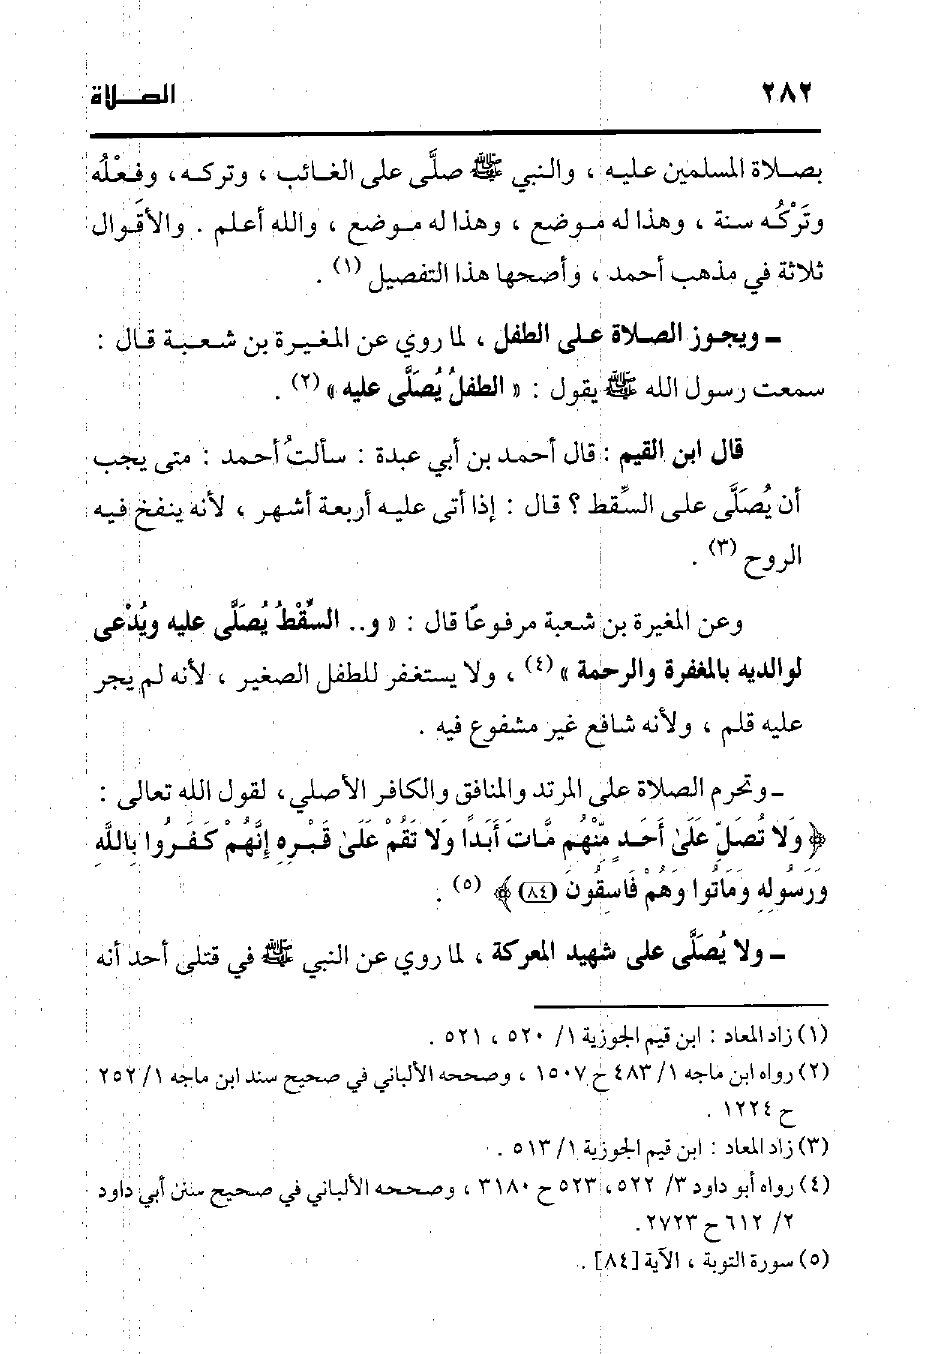 ٢٨٢
الصــلاة
بصــلاة المسلمين عليـه ، والنبي ﷺ صلَّى على الغـائب ، وتركـه، وفـعْلُه
وتَرْكُـه سنة ، وهذا له مـوضع ، وهذا له مـوضع ، والله أعلم . والأقـوال
ثلاثة في مذهب أحمد ، وأصحها هذا التفصيل (١) .
ـ ويجـوز الصـلاة علـى الطفل ، لما روي عن المغـيـرة بن شـعـبـة قـال :
سمعت رسول الله ﷺ يقول : « الطفلُ يُصَلَّى عليه » (٢) .
قال ابن القيم : قال أحمد بن أبي عبدة : سألتُ أحمد : متى يجب
أن يُصَلَّى علـى السِّقط ؟ قـال : إذا أتى عليـه أربعـة أشهـر ، لأنه ينفـخ فيـه
الروح (٣) .
وعن المغيرة بن شعبة مرفـوعًا قال : « و.. السِّقْطُ يُصَلَّى عليه ويُدْعى
لوالديه بالمغفرة والرحمة » (٤) ، ولا يستغفر للطفل الصغير ، لأنه لم يجر
عليه قلم ، ولأنه شافع غير مشفوع فيه .
ـ وتحرم الصلاة على المرتد والمنافق والكافر الأصلي، لقول الله تعالى :
﴿ وَلا تُصَلِّ عَلَىٰ أَحَـدٍ مِّنْهُم مَّاتَ أَبَدًا وَلا تَقُمْ عَلَىٰ قَبْـرِهِ إِنَّهُمْ كَـفَـرُوا بِاللَّهِ
وَرَسُولِهِ وَمَاتُوا وَهُمْ فَاسِقُونَ (٨٤) ﴾ (٥) .
ـ ولا يُصَلَّى على شهيد المعركة ، لما روي عن النبي ﷺ في قتلى أحد أنه
(١) زاد المعاد : ابن قيم الجوزية ١/ ٥٢٠ ، ٥٢١ .
(٢) رواه ابن ماجه ١/ ٤٨٣ ح ١٥٠٧ ، وصححه الألباني في صحيح سند ابن ماجه ١/ ٢٥٢
ح ١٢٢٤ .
(٣) زاد المعاد : ابن قيم الجوزية ١/ ٥١٣ .
(٤) رواه أبو داود ٣/ ٥٢٢، ٥٢٣ ح ٣١٨٠ ، وصححه الألباني في صحيح سنن أبي داود
٢/ ٦١٢ ح ٢٧٢٣.
(٥) سورة التوبة ، الآية [٨٤] .